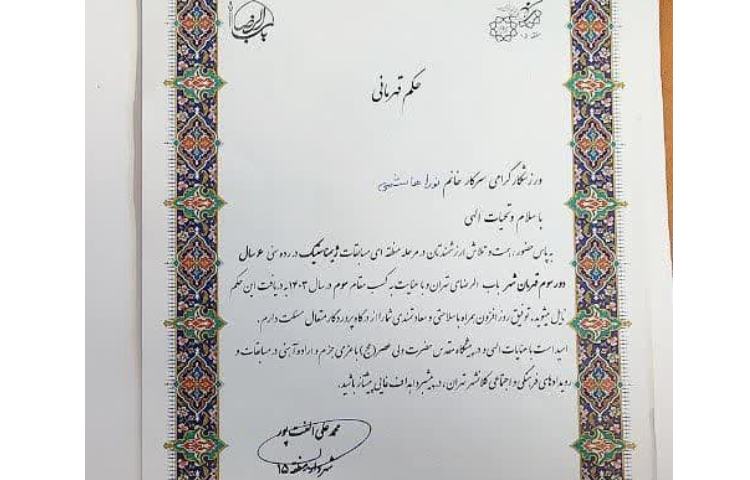 باب الرضا
منطقه ۱۵
حکم قهرمانی
ورزشکار گرامی سرکار خانم نورا هاشمی
با سلام و تحیات الهی
به پاس حضور، همت و تلاش ارزشمندتان در مرحله منطقه ای مسابقات ژیمناستیک در رده سنی ۶ سال
دور سوم قهرمان شهر باب الرضای تهران و با عنایت به کسب مقام سوم در سال ۱۴۰۳ به دریافت این حکم
نایل میشوید. توفیق روز افزون همراه با سلامتی و سعادتمندی شما را از درگاه پروردگار متعال مسئلت دارم.
امید است با عنایات الهی و در پیشگاه مقدس حضرت ولی عصر (عج) با عزمی جزم و اراده آهنی در مسابقات و
رویدادهای فرهنگی و اجتماعی کلانشهر تهران، در پیشبرد اهداف غایی پیشتاز باشید.
محمد علی الفت پور
شهردار منطقه ۱۵